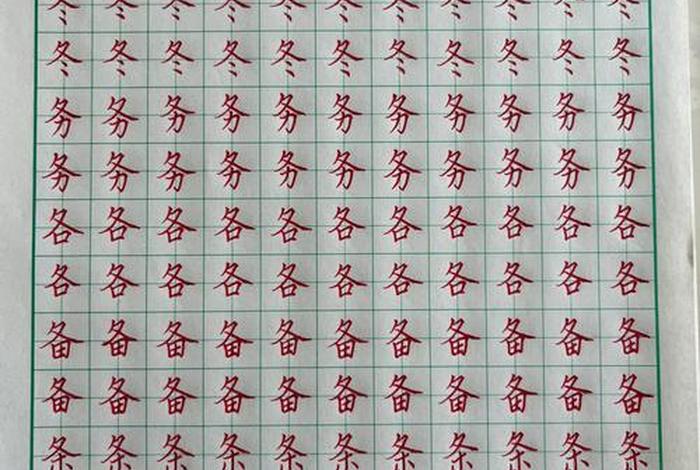 冬冬冬冬冬冬冬冬冬冬冬
冬冬冬冬冬冬冬冬冬冬冬
务务务务务务务务务务务
务务务务务务务务务务务
各各各各各各各各各各各
各各各各各各各各各各各
备备备备备备备备备备备
备备备备备备备备备备备
条条条条条条条条条条条